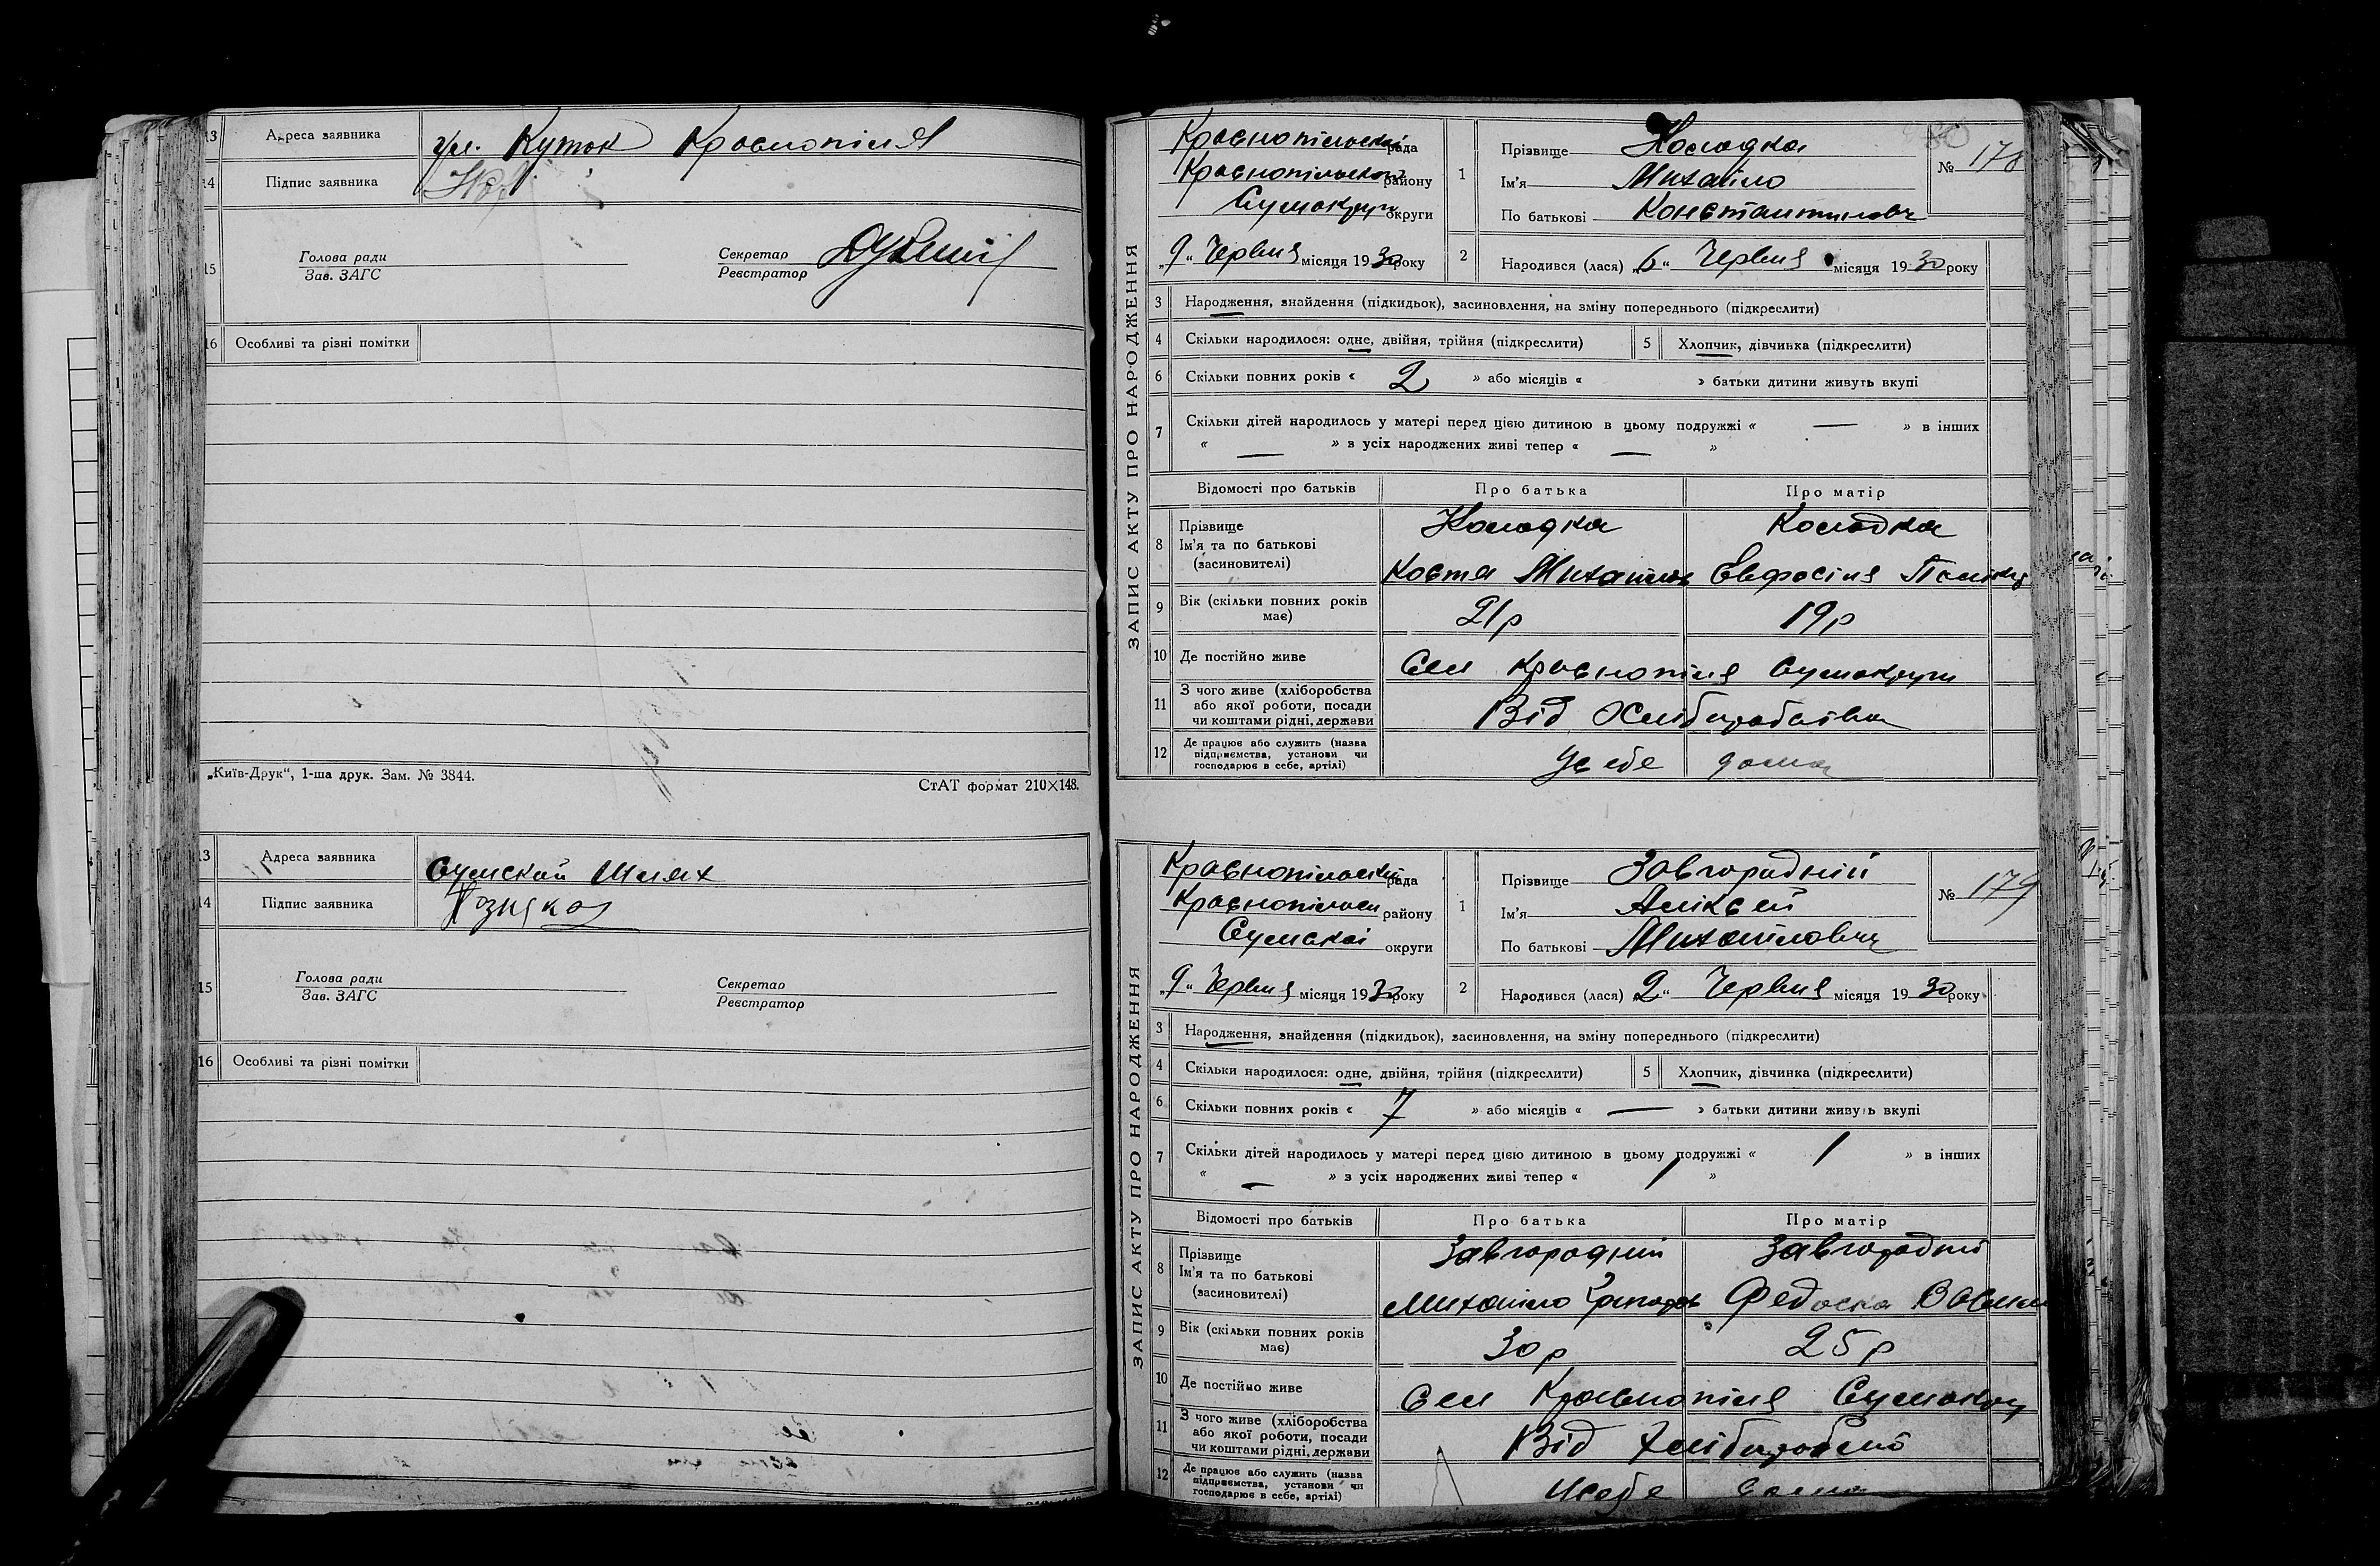 13 Адреса заявника
вул. Куток Краснопілля
14 Підпис заявника
15 Голова ради
Зав. ЗАГС
Секретар
Реєстратор
16 Особливі та різні помітки
„Київ-Друк“, 1-ша друк. Зам. № 3844.
СтАТ формат 210×148.
13 Адреса заявника
Сумской Шлях
14 Підпис заявника
15 Голова ради
Зав. ЗАГС
Секретар
Реєстратор
16 Особливі та різні помітки
ЗАПИС АКТУ ПРО НАРОДЖЕННЯ
Краснопільській рада
Краснопільськ району
Сумокруги округи
„9“ Червня місяця 1930 року
1 Прізвище Колодка
Ім'я Михайло
По батькові Константинович
№ 178
2 Народився (лася) „6“ Червня місяця 1930 року
3 Народження, знайдення (підкидьок), засиновлення, на зміну попереднього (підкреслити)
4 Скільки народилося: одне, двійня, трійня (підкреслити)
5 Хлопчик, дівчинка (підкреслити)
6 Скільки повних років « 2 » або місяців « » батьки дитини живуть вкупі
7 Скільки дітей народилось у матері перед цією дитиною в цьому подружжі « — » в інших
« — » з усіх народжених живі тепер « — »
Відомості про батьків Про батька Про матір
8 Прізвище
Ім'я та по батькові
(засиновителі)
Колодка Колодка
Костя Михайлов Евфросіня
9 Вік (скільки повних років має)
21р 19р
10 Де постійно живе
Сел Краснопілля Сумокруги
11 З чого живе (хліборобства
або якої роботи, посади
чи коштами рідні, держави
Від Хліборобства
12 Де працює або служить (назва
підприємства, установи чи
господарює в себе, артілі)
Усебе дома
ЗАПИС АКТУ ПРО НАРОДЖЕННЯ
Краснопільській рада
Краснопільськ району
Сумської округи
„9“ Червня місяця 1930 року
1 Прізвище Завгородній
Ім'я Аліксей
По батькові Михайлович
№ 179
2 Народився (лася) „2“ Червня місяця 1930 року
3 Народження, знайдення (підкидьок), засиновлення, на зміну попереднього (підкреслити)
4 Скільки народилося: одне, двійня, трійня (підкреслити)
5 Хлопчик, дівчинка (підкреслити)
6 Скільки повних років « 7 » або місяців « — » батьки дитини живуть вкупі
7 Скільки дітей народилось у матері перед цією дитиною в цьому подружжі « 1 » в інших
« — » з усіх народжених живі тепер « 1 »
Відомості про батьків Про батька Про матір
8 Прізвище
Ім'я та по батькові
(засиновителі)
Завгородній Завгородні
Михайло Федоска
9 Вік (скільки повних років має)
30р 25р
10 Де постійно живе
Сел Краснопілля Сумокру
11 З чого живе (хліборобства
або якої роботи, посади
чи коштами рідні, держави
Від Хлібороб
12 Де працює або служить (назва
підприємства, установи чи
господарює в себе, артілі)
Усебе дома